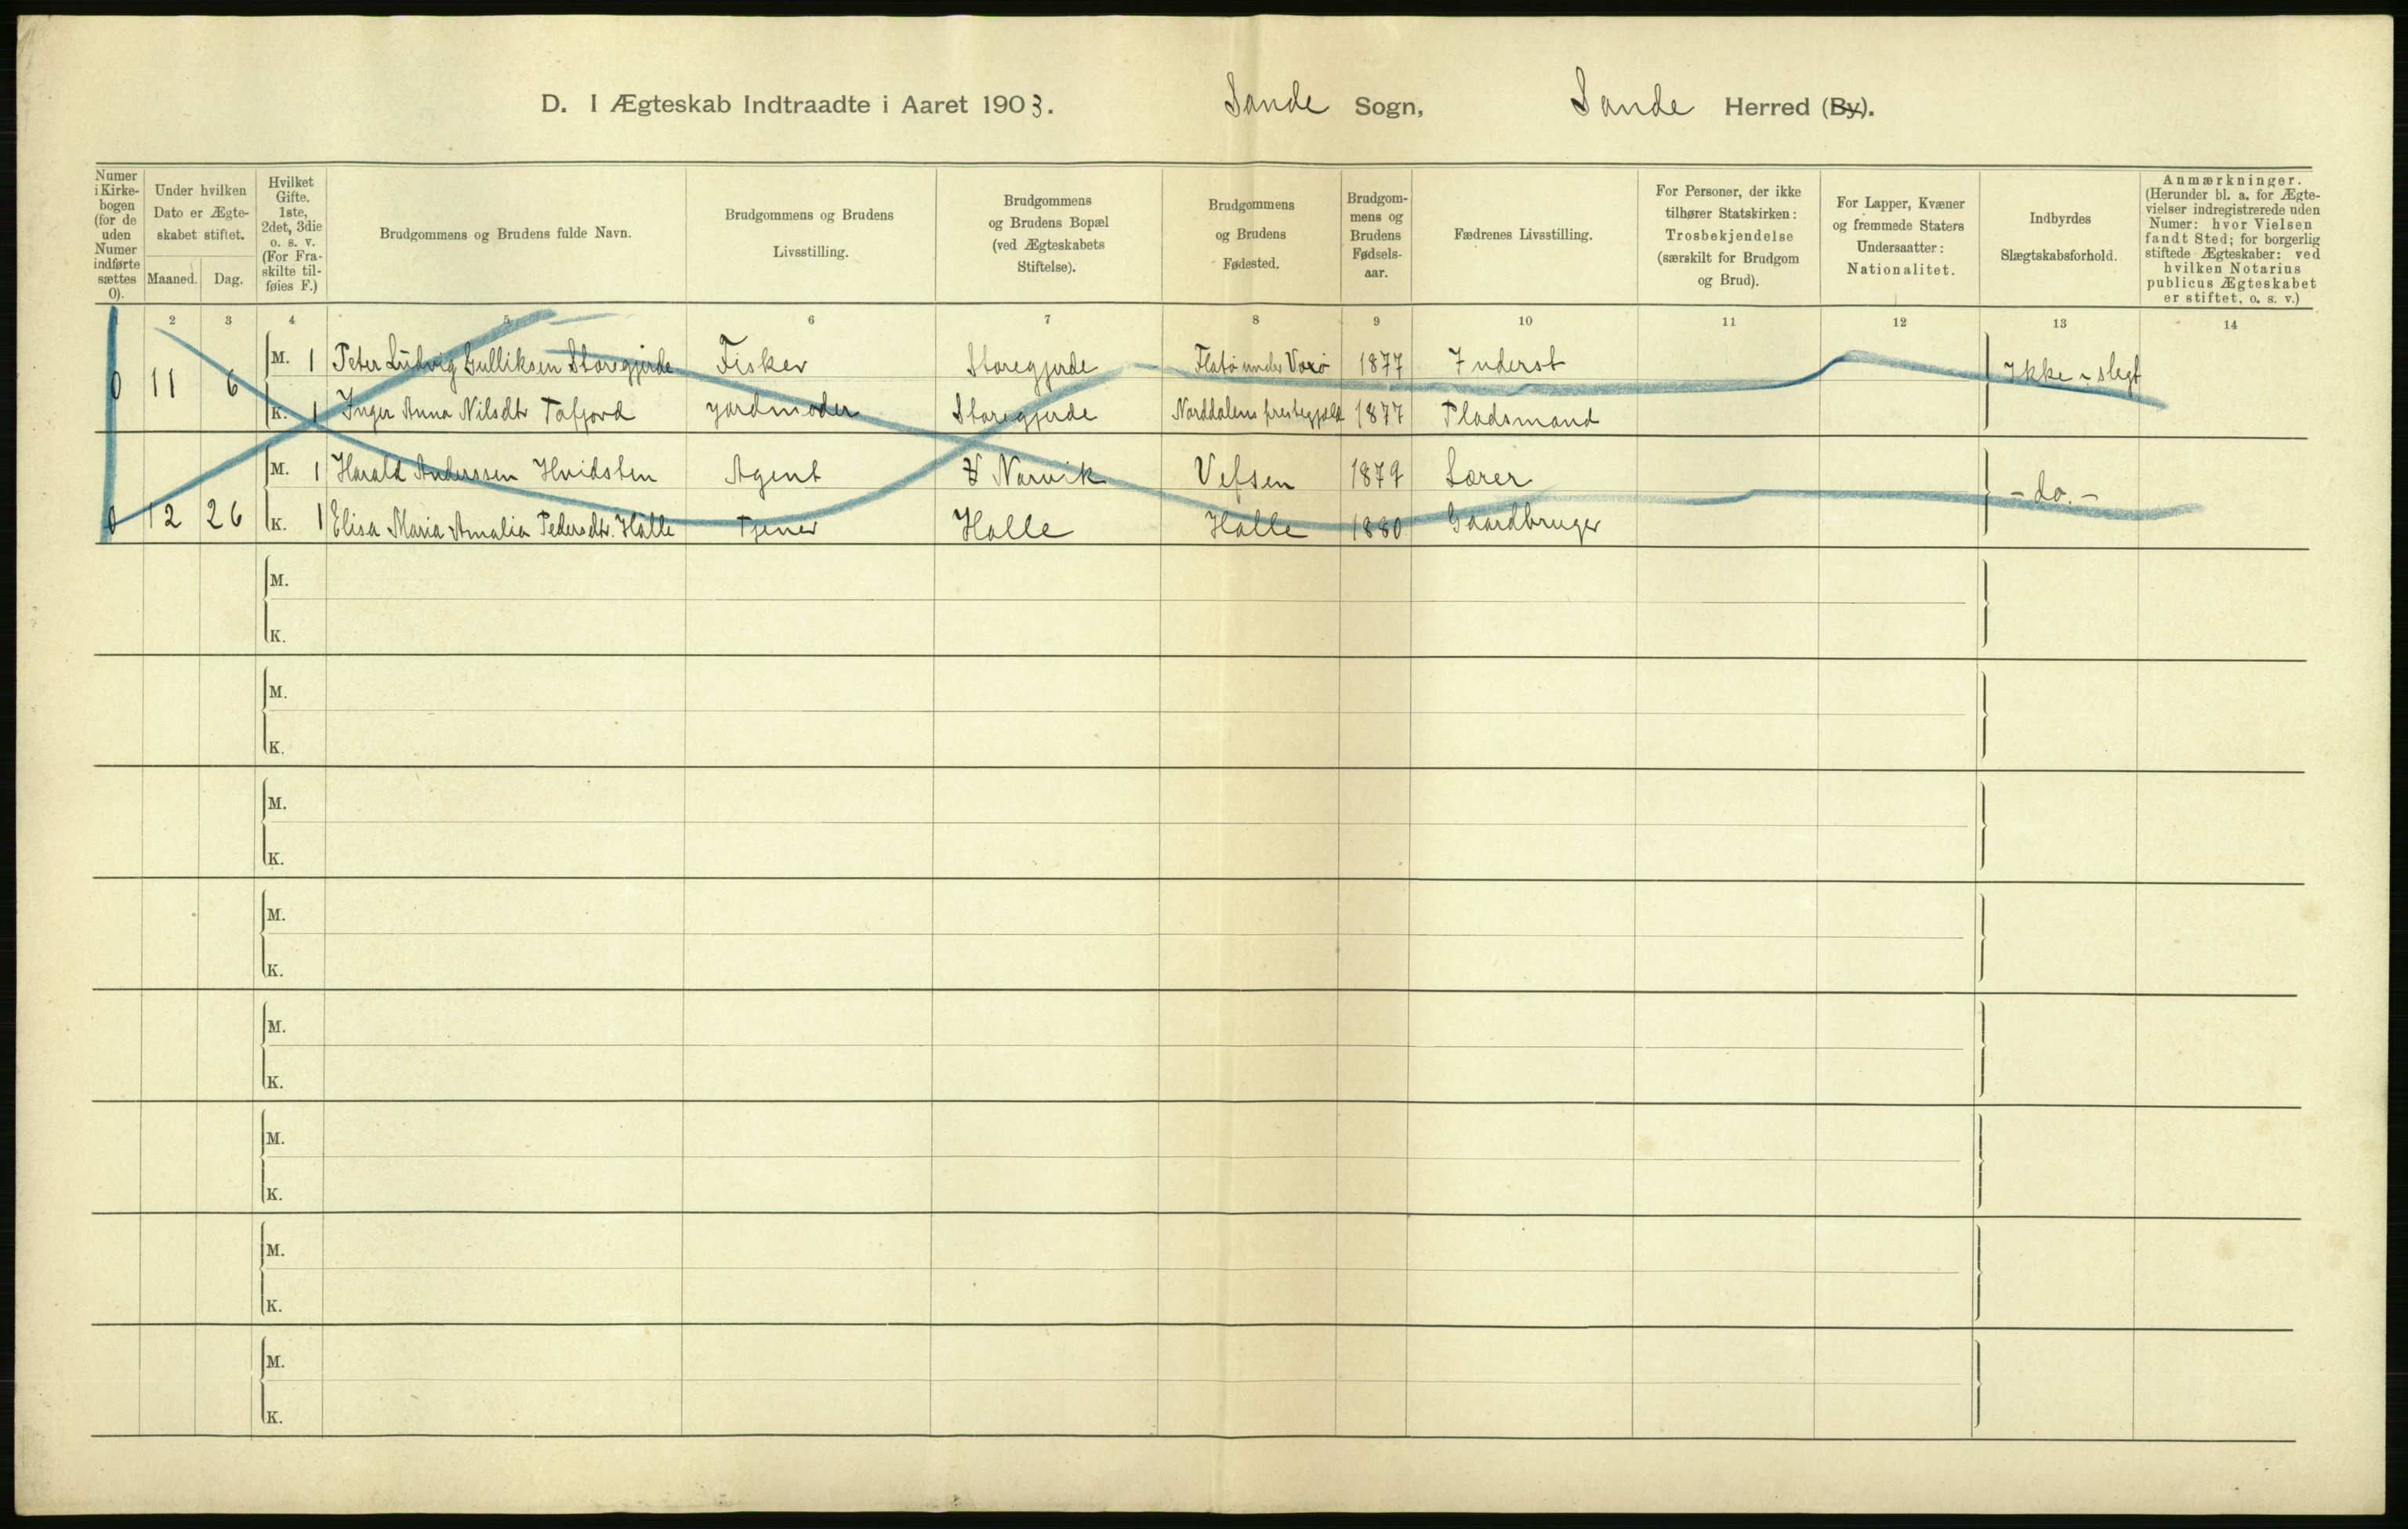 D. I Ægteskab Indtraadte i Aaret 1903. Sande Sogn, Sande Herred (By).
Numer i Kirkebogen (for de uden Numer indførte sættes 0).
Under hvilken Dato er Ægteskabet stiftet.
Maaned. Dag.
Hvilket Gifte. 1ste, 2det, 3die o. s. v. (For Fraskilte tilføies F.)
Brudgommens og Brudens fulde Navn.
Brudgommens og Brudens Livsstilling.
Brudgommens og Brudens Bopæl (ved Ægteskabets Stiftelse).
Brudgommens og Brudens Fødested.
Brudgommens og Brudens Fødselsaar.
Fædrenes Livsstilling.
For Personer, der ikke tilhører Statskirken: Trosbekjendelse (særskilt for Brudgom og Brud).
For Lapper, Kvæner og fremmede Staters Undersaatter: Nationalitet.
Indbyrdes Slægtskabsforhold.
Anmærkninger. (Herunder bl. a. for Ægtevielser indregistrerede uden Numer: hvor Vielsen fandt Sted; for borgerlig stiftede Ægteskaber: ved hvilken Notarius publicus Ægteskabet er stiftet, o. s. v.)
1 2 3 4 5 6 7 8 9 10 11 12 13 14
0 11 6 M. 1 Peter Ludvig Gulliksen Storegjerde Fisker Storegjerde 1877 Inderst Ikke slegt
K. 1 Inger Anna Nilsdtr Tafjord jordmoder Storegjerde Norddalens prestegjæld 1877 Pladsmand
M. 1 Harald Anderssen Hvidsten Agent Narvik Vefsen 1879 Lærer
0 12 26 K. 1 Elisa Maria Amalia Pedersdtr. Halle Tjener Halle Halle 1880 Gaardbruger - do. -
M.
K.
M.
K.
M.
K.
M.
K.
M.
K.
M.
K.
M.
K.
M.
K.